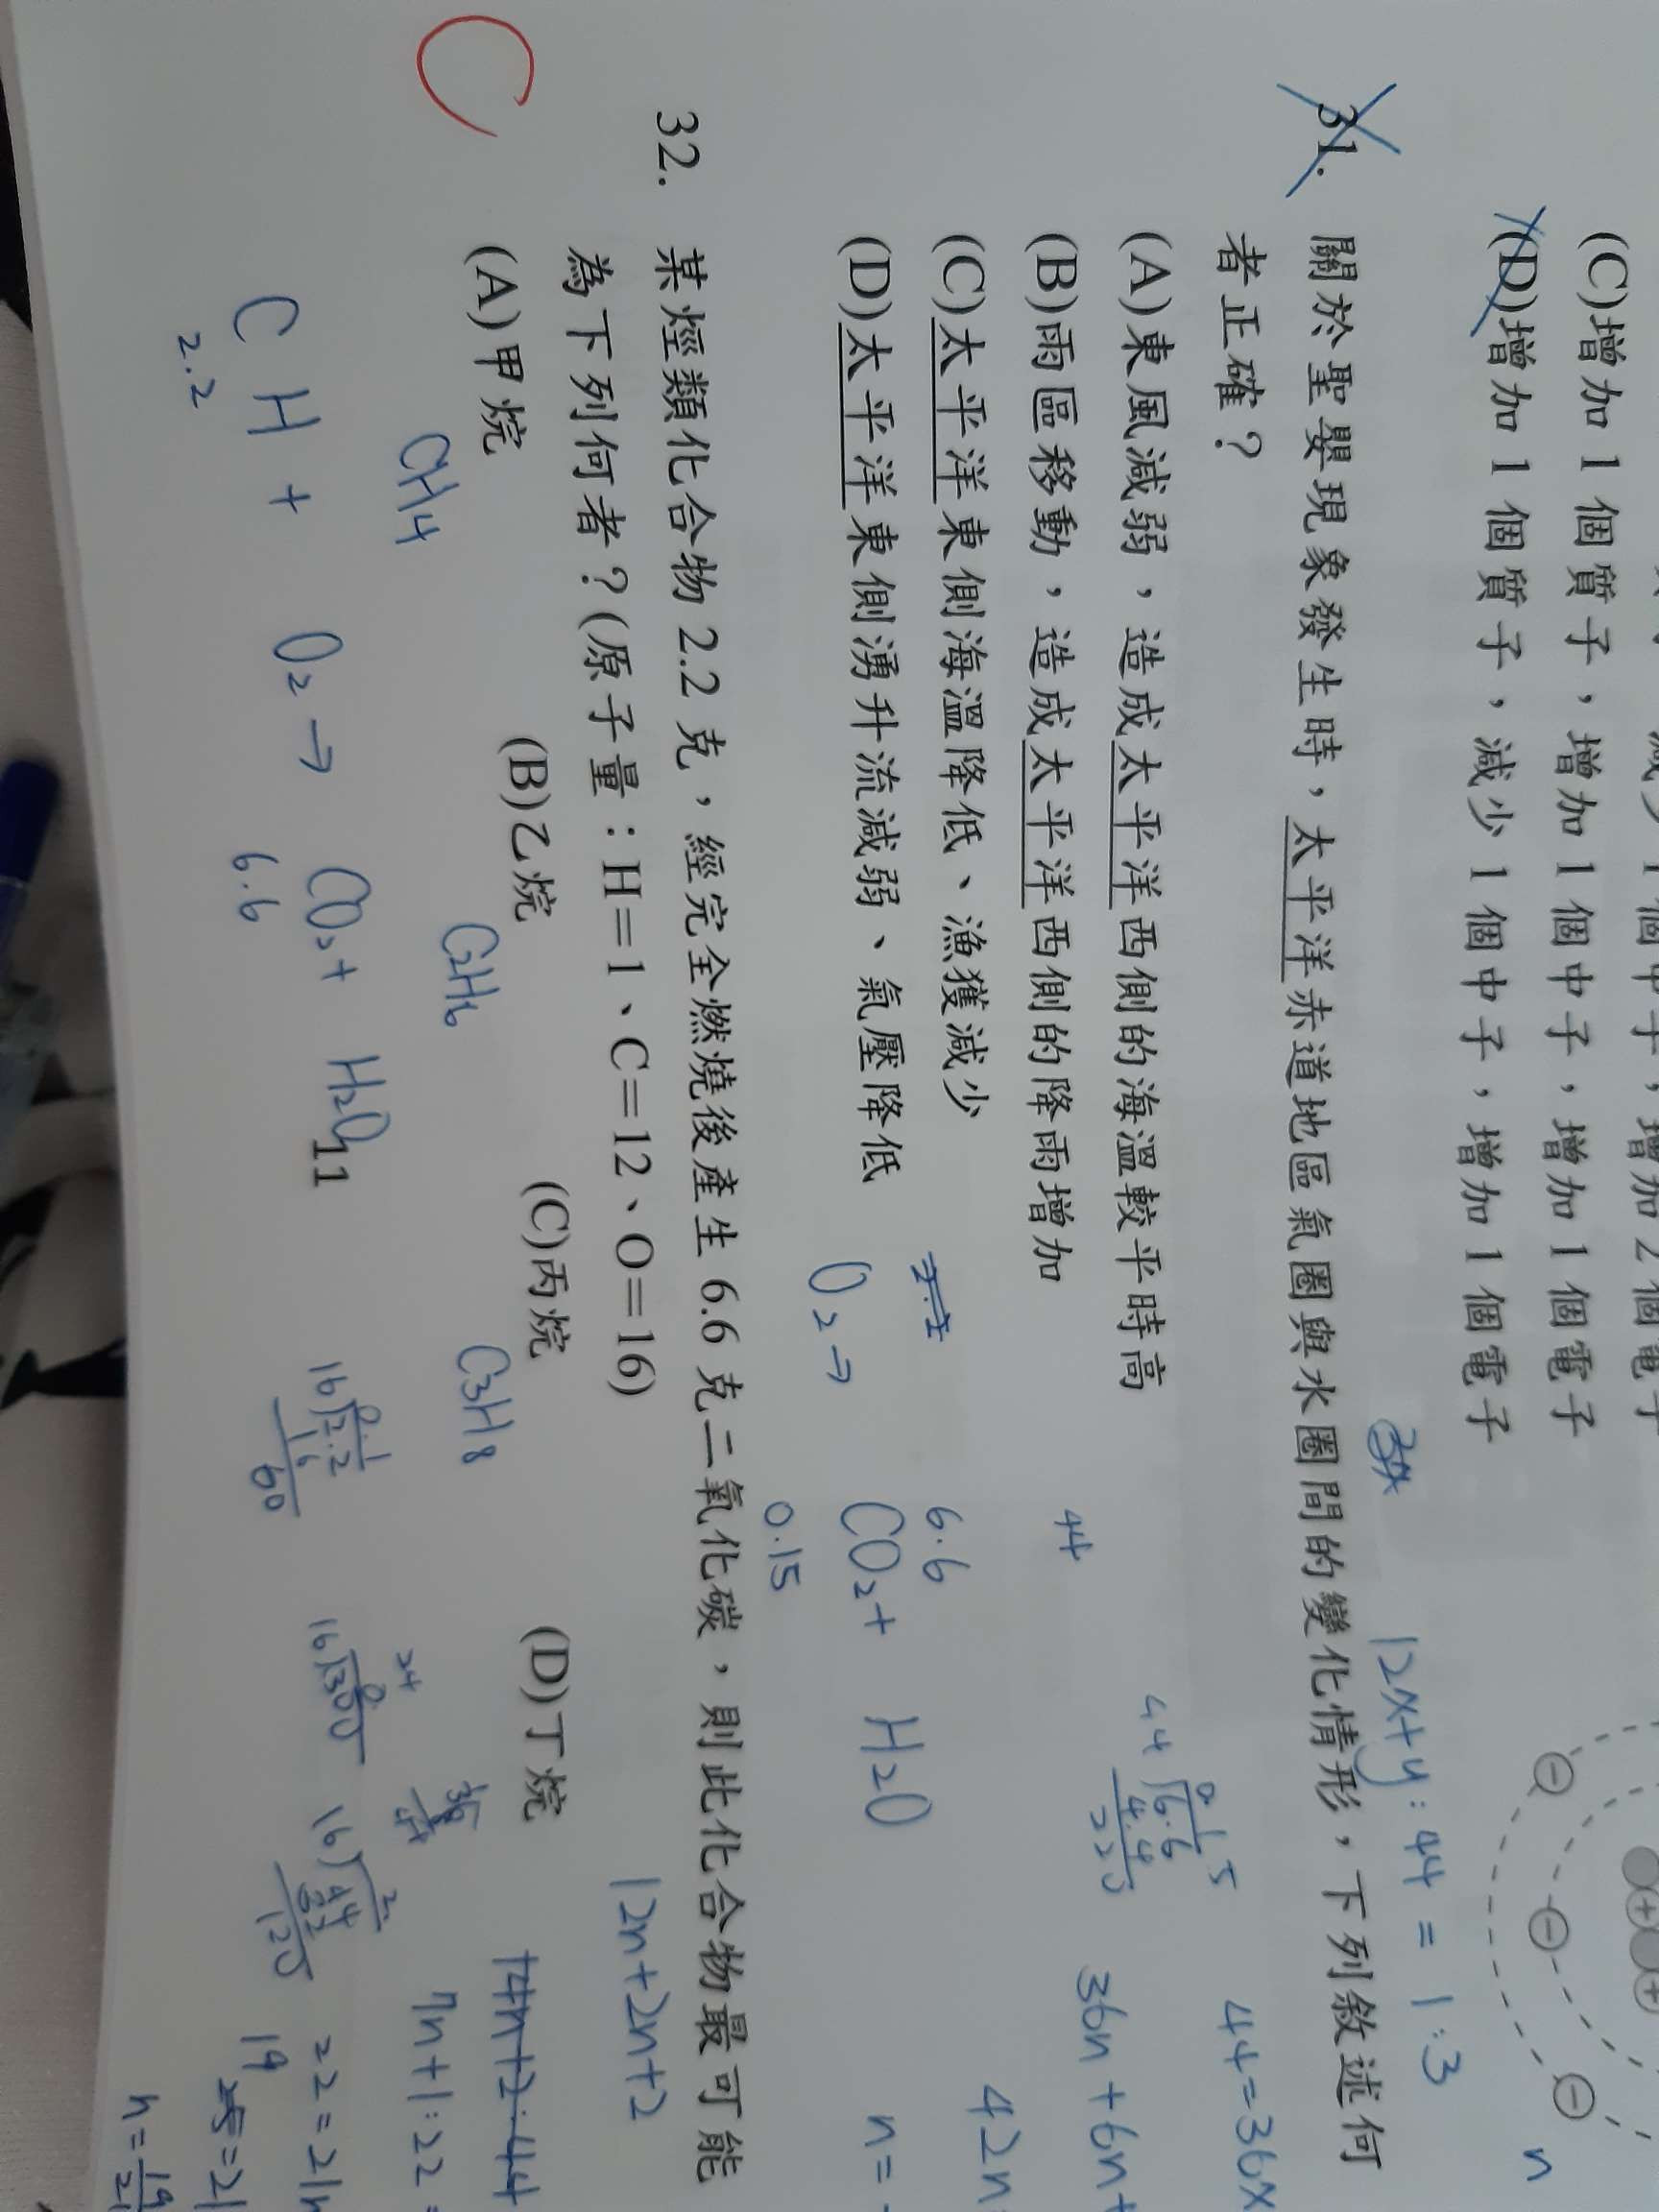 (C)增加 1 個質子，增加 1 個中子，增加 1 個電子
(D)增加 1 個質子，減少 1 個中子，增加 1 個電子
31. 關於聖嬰現象發生時，太平洋赤道地區氣圈與水圈間的變化情形，下列敘述何
者正確？
(A)東風減弱，造成太平洋西側的海溫較平時高
(B)雨區移動，造成太平洋西側的降雨增加
(C)太平洋東側海溫降低、漁獲減少
(D)太平洋東側湧升流減弱、氣壓降低
12x+y:44=1:3
44=36x
44
36n+6n+
6.6
O₂→ CO₂+ H₂O
0.15
42n
n=
32. 某烴類化合物 2.2 克，經完全燃燒後產生 6.6 克二氧化碳，則此化合物最可能
為下列何者？(原子量：H＝1、C＝12、O＝16)
12n+2n+2
(A)甲烷 (B)乙烷 (C)丙烷 (D)丁烷
CH4 C2H6 C3H8
14n+2:44
7n+1:22=
C H + O₂→ CO₂+ H₂O
2.2 6.6
22=21n
19
n=
11
C